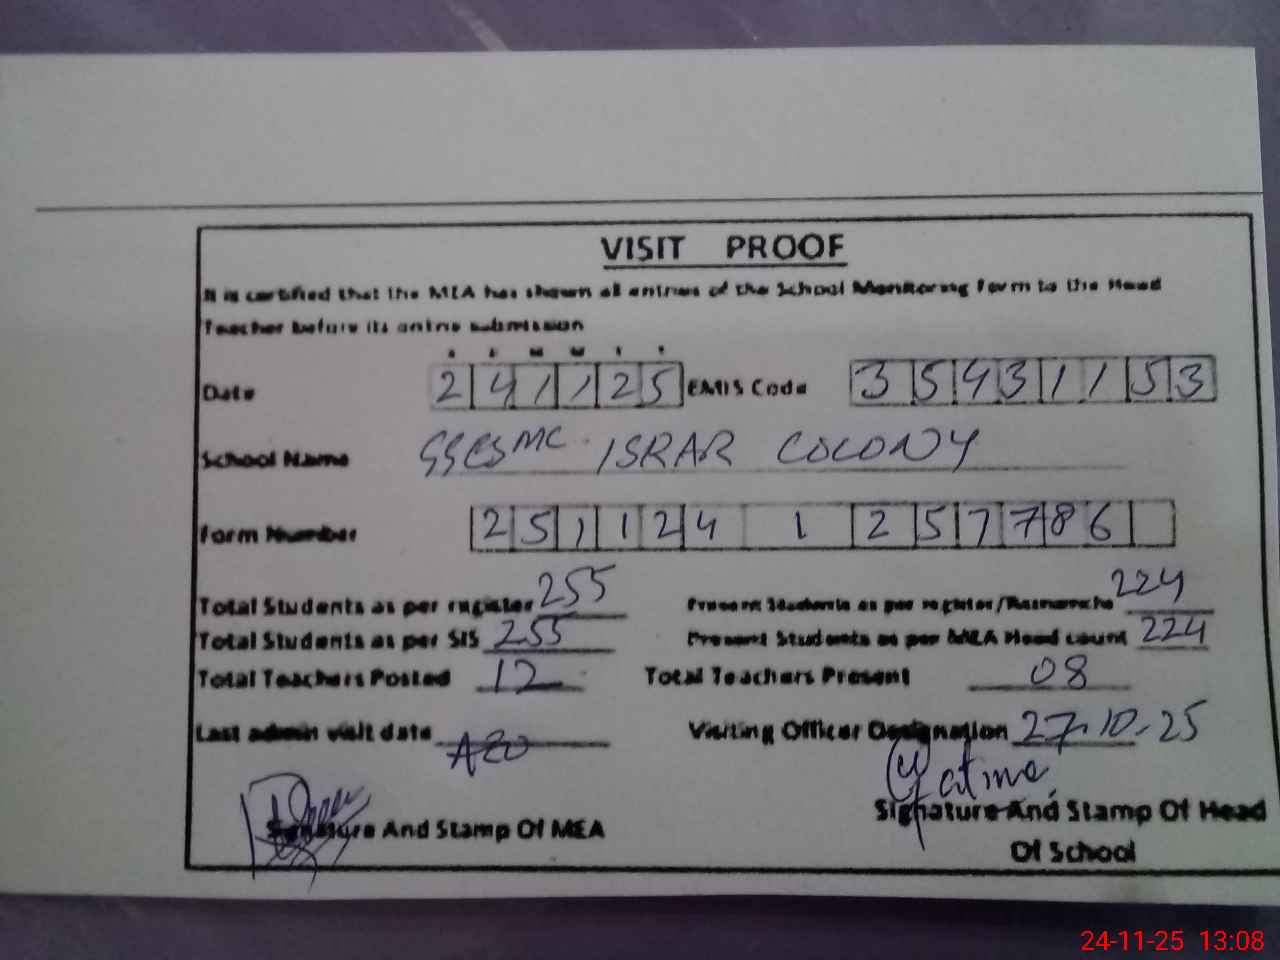 VISIT PROOF
It is certified that the MEA has shown all entries of the School Monitoring Form to the Head
Teacher before its online submission
D D M M Y Y
Date 241125 EMIS Code 35431153
School Name ISRAR COLONY
Form Number 251124 1 257786
Total Students as per register 255 Present Students as per register/ 224
Total Students as per SIS 255 Present Students as per MEA Head count 224
Total Teachers Posted 12 Total Teachers Present 08
Last admin visit date AEO Visiting Officer Designation 27-10-25
Fatima
Signature And Stamp Of MEA Signature And Stamp Of Head
Of School
24-11-25 13:08